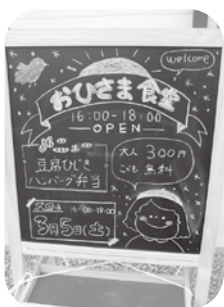 welcome
おひさま食堂
16:00-18:00
OPEN
豆腐ひじき
ハンバーグ弁当
大人 300円
こども 無料
次回は 16:00-18:00
3月5日(土)